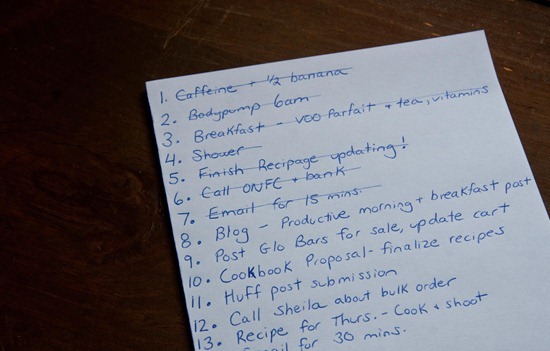 1. Caffeine + 1/2 banana
2. Bodypump 6am
3. Breakfast - VOO Parfait + tea, vitamins
4. Shower
5. Finish Recipage updating!
6. Call ONFC + bank
7. Email for 15 mins.
8. Blog - Productive morning + breakfast post
9. Post Glo Bars for sale, update cart
10. Cookbook Proposal - finalize recipes
11. Huff post submission
12. Call Sheila about bulk order
13. Recipe for Thurs. - Cook + shoot
for 30 mins.